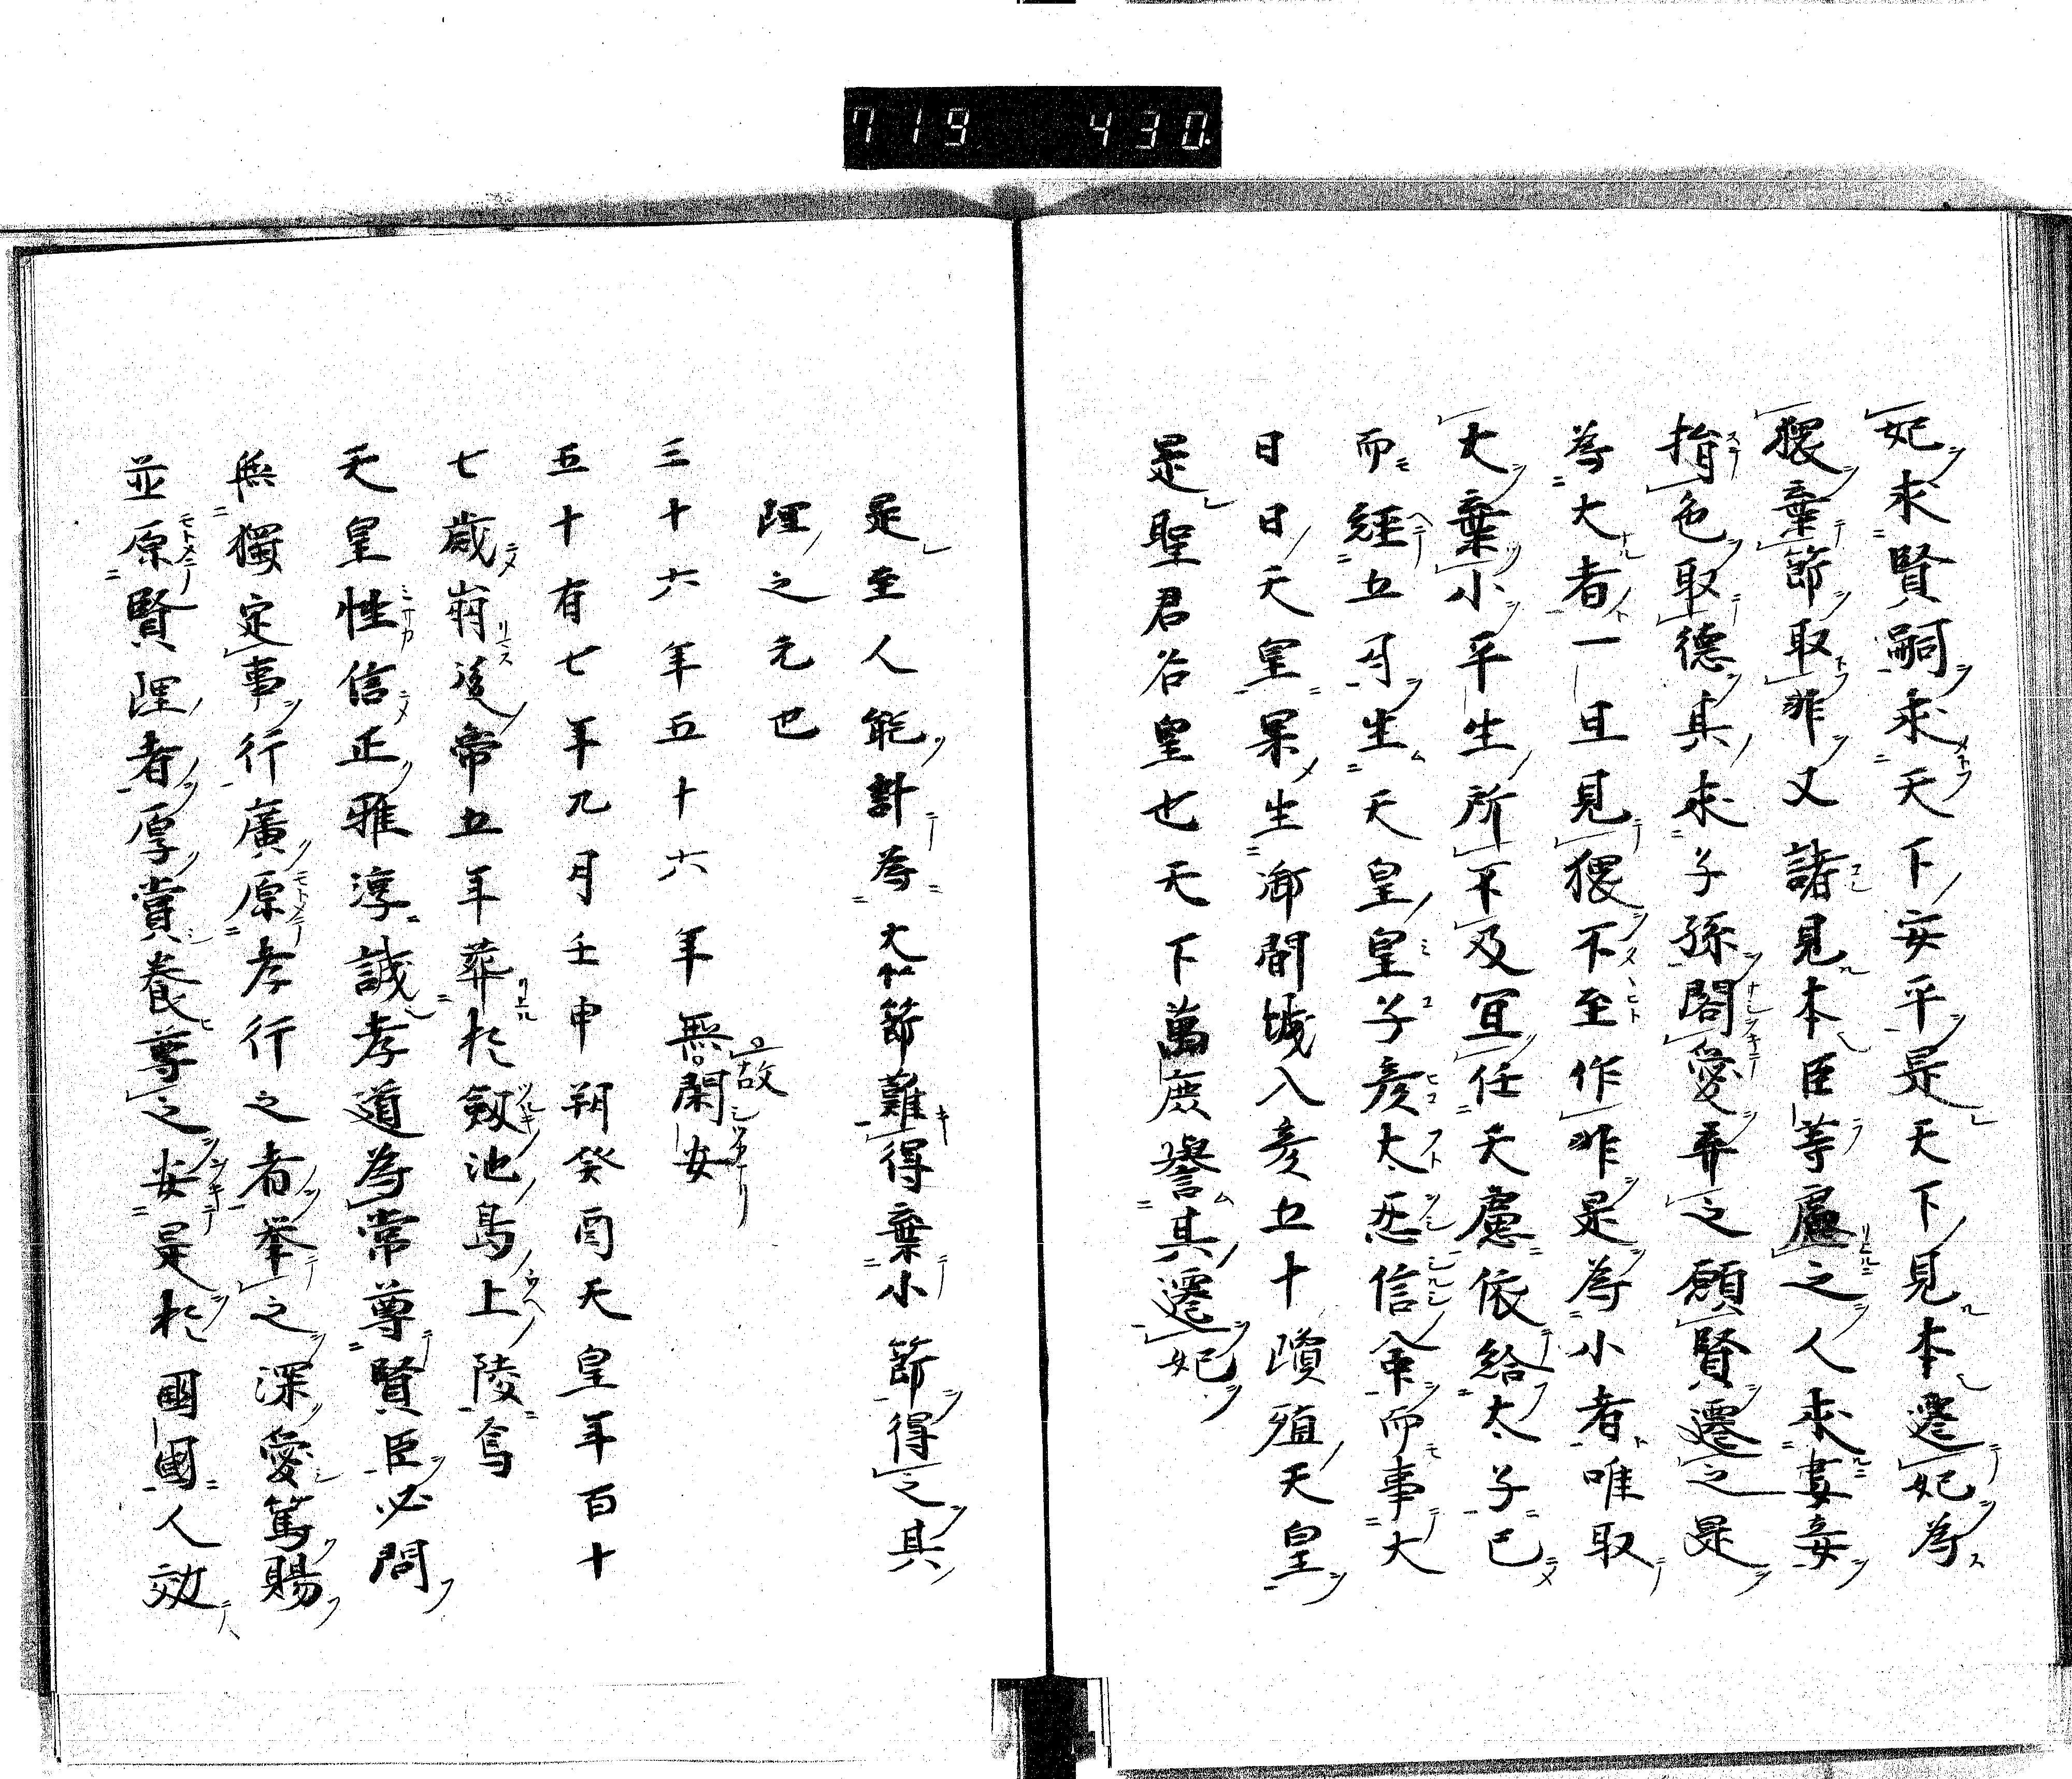 719 430
妃求賢嗣求天下安平是天下見本遷妃為
猥棄節取非又諸見本臣等處之人求妻妾
捐色取德其求子孫閣愛弄之願賢遷之是
為大者一旦見猥不至作非是為小者唯取
大棄小平生所不及宜任天慮依給太子已
而經五月生天皇皇子彦太忍信命而事大
日日天皇果生御間城入彦五十瓊殖天皇
是聖君谷皇也天下萬庶譽其遷妃
是至人能計為大節難得棄小節得之其
理之元也
三十六年五十六年無閑故安
五十有七年九月壬申朔癸酉天皇年百十
七歲崩後帝五年葬於劔池島上陵焉
天皇性信正雅淳誠孝道為常尊賢臣必問
無獨定事行廣原孝行之者挙之深愛篤賜
並原賢理者厚賞養尊之安是於國國人效